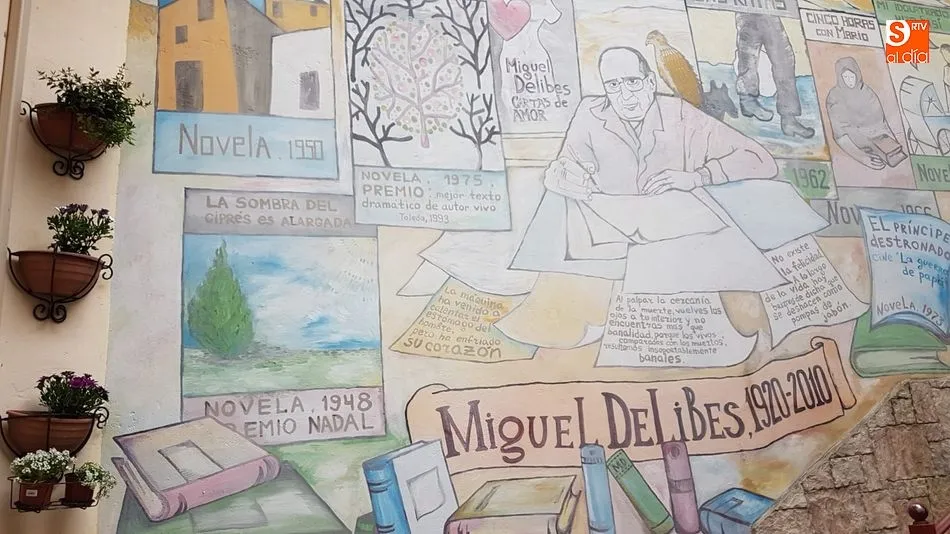 S RTV
al día
Novela . 1990
NOVELA . 1975 .
PREMIO : mejor texto
dramatico de autor vivo
Toledo, 1993
Miguel
Delibes
CARTAS de
AMOR
CINCO HORAS
con MARIO
MI IDOLATRADO
1962
LA SOMBRA DEL
CIPRÉS ES ALARGADA
NOVELA . 1948
PREMIO NADAL
La máquina
ha venido a
calentar el
estómago del
hombre,
pero ha enfriado
su corazón
Al palpar la cercanía
de la muerte, vuelves los
ojos a tu interior y no
encuentras más que
banalidad, porque los vivos
comparados con los muertos,
resultamos insoportablemente
banales.
No existe
la felicidad.
a lo largo
de la vida hay
que se deshacen como
pompas de
jabón.
EL PRÍNCIPE
DESTRONADO
cine 'La guerra
de papá
NOVELA. 197
MIGUEL DELIBES, 1920-2010
MD